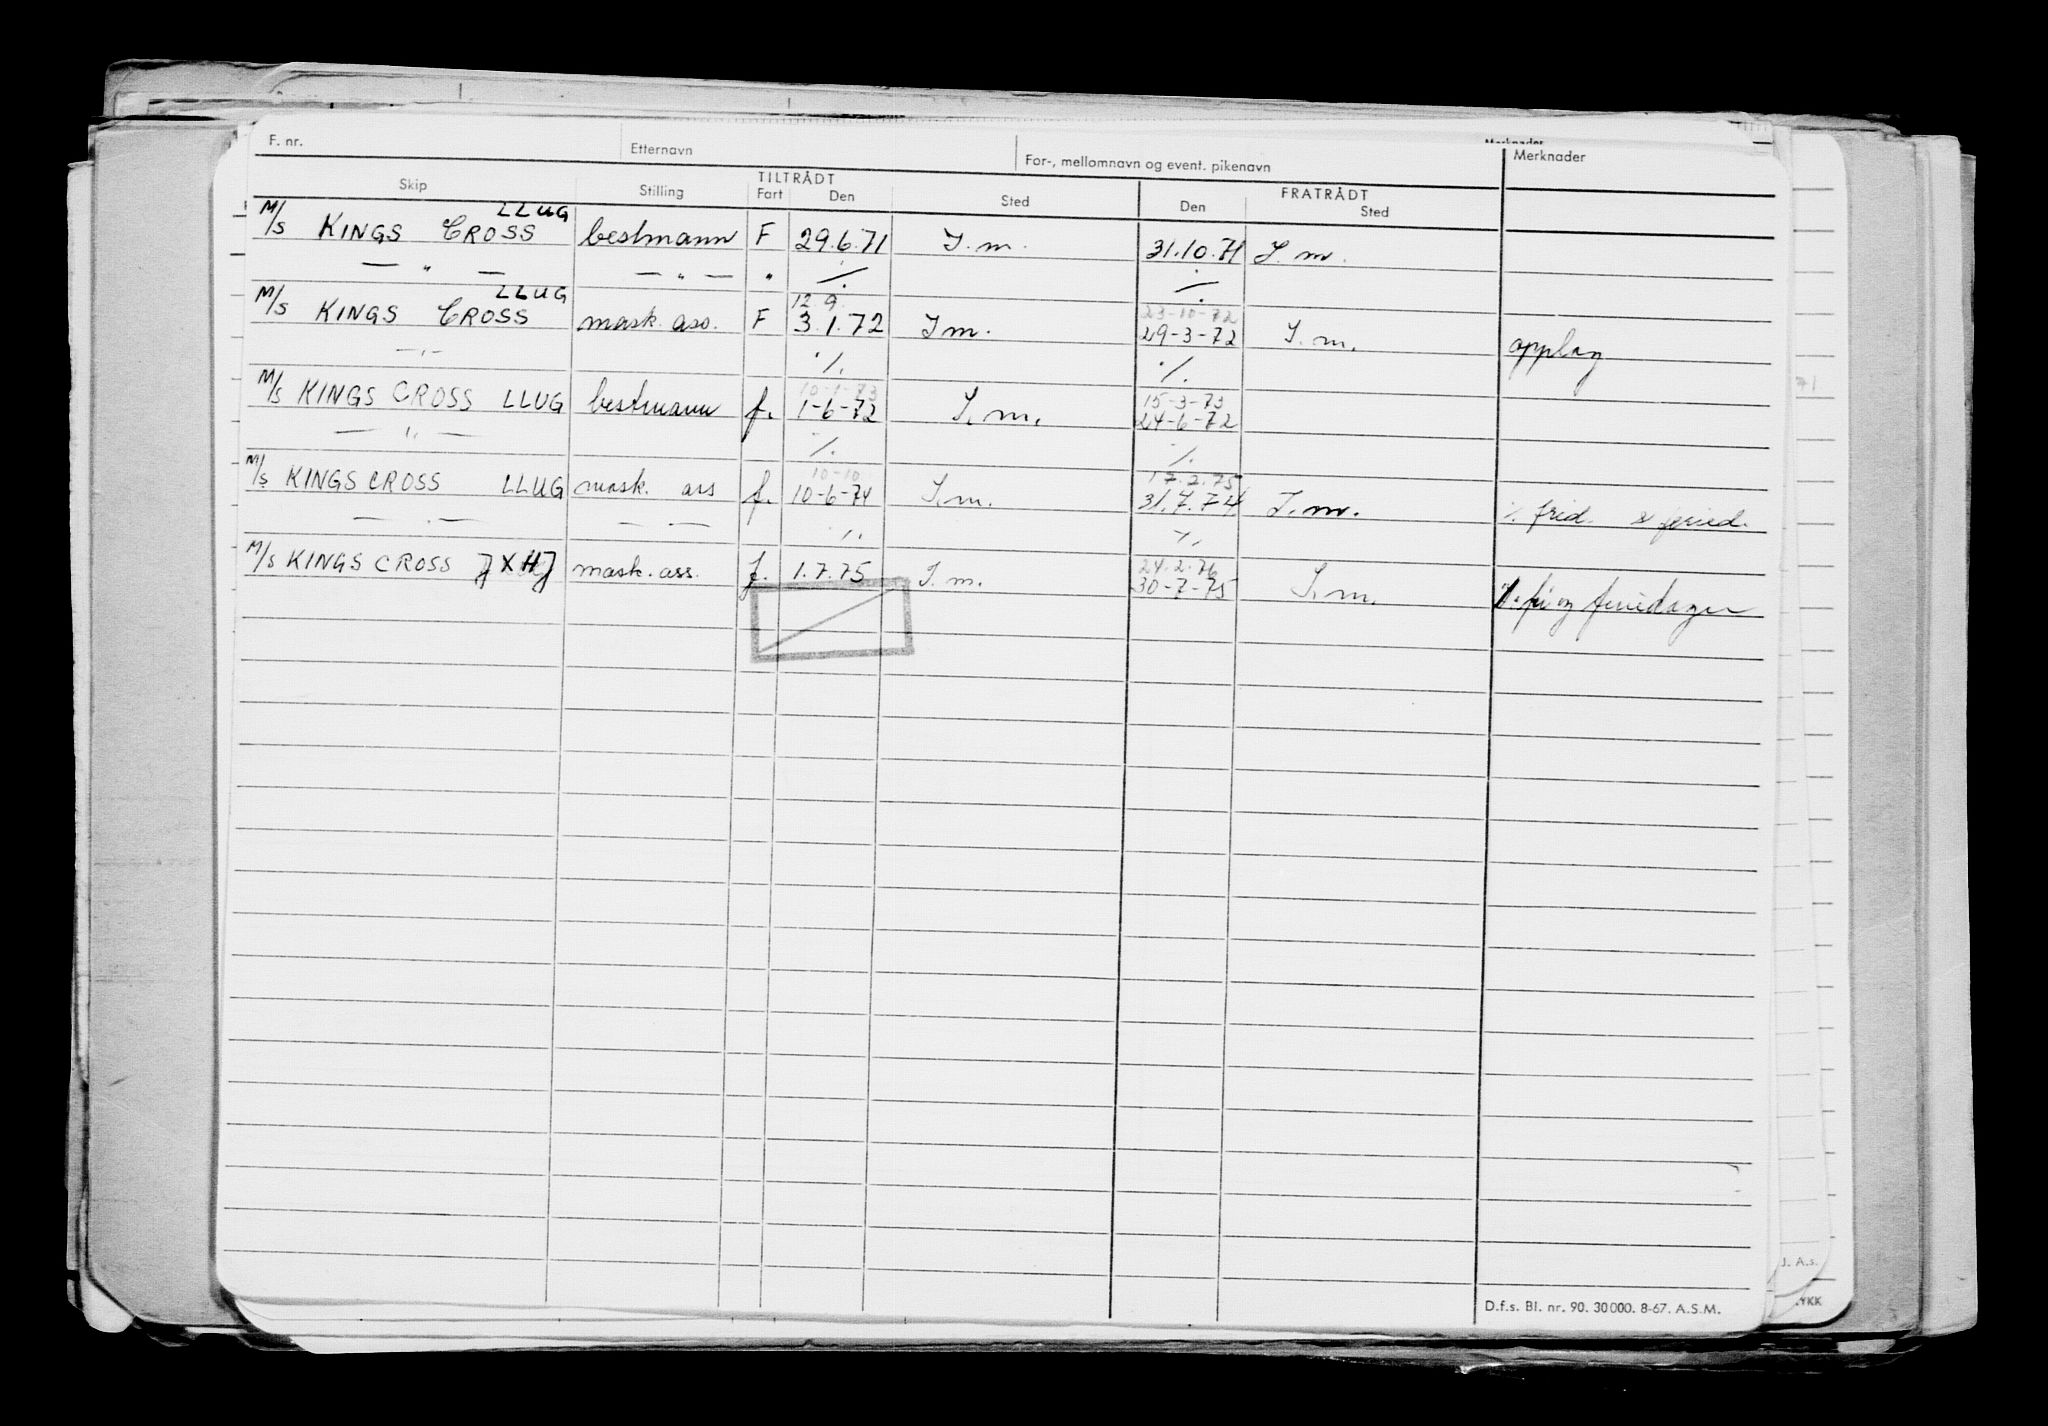 F. nr. Etternavn For-, mellomnavn og event. pikenavn Merknader
TILTRÅDT FRATRÅDT
Skip Stilling Fart Den Sted Den Sted
LLUG
M/S KINGS CROSS bestmann F 29.6.71 I. m. 31.10.71 I. m.
— " — — " — " ·/. ·/.
LLUG 12.9. 23-10-72
M/S KINGS CROSS mask. ass. F 3.1.72 I m. 29-3-72 I. m. opplag
— " — ·/. ·/.
10-1-73 15-3-73
M/S KINGS CROSS LLUG bestmann f. 1-6-72 I. m. 24-6-72
— " — ·/. ·/.
10-10 17.2.75
M/S KINGS CROSS LLUG mask. ass f. 10-6-74 I. m. 31.7.74 I. m. ·/. frid. & feried.
— . — — . — ·/. ·/.
24.2.76
M/S KINGS CROSS JXHJ mask. ass. f. 1.7.75 I. m. 30-7-75 I. m. ·/. fri og feriedager
71
J. A.s.
YKK
D.f.s. Bl. nr. 90. 30000. 8-67. A.S.M.